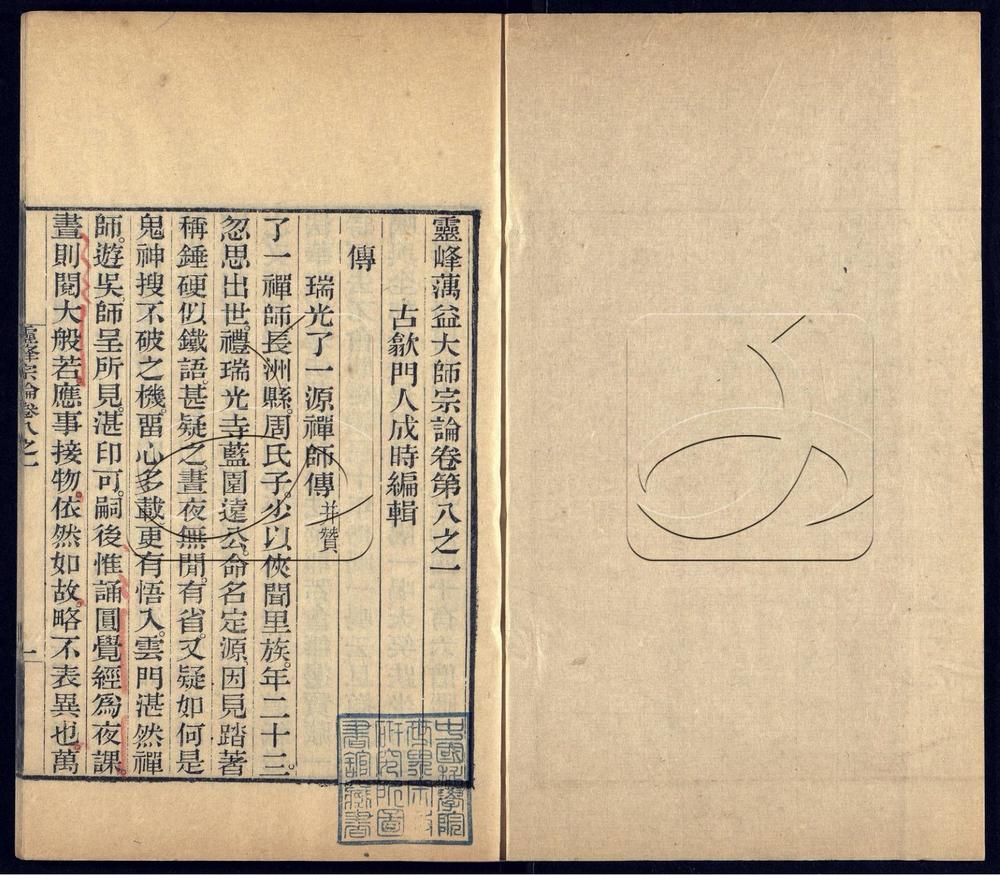 靈峰蕅益大師宗論卷第八之二
古歙門人成時編輯
傳
瑞光了一源禪師傳并贊
了一禪師長洲縣周氏子少以俠聞里族年二十三
忽思出世禮瑞光寺藍園遠公命名定源因見踏著
稱錘硬似鐵語甚疑之晝夜無閒有省又疑如何是
鬼神搜不破之機畱心多載更有悟入雲門湛然禪
師遊吳師呈所見湛印可嗣後惟誦圓覺經爲夜課
晝則閱大般若應事接物依然如故略不表異也萬
靈峰宗論卷八之二
一